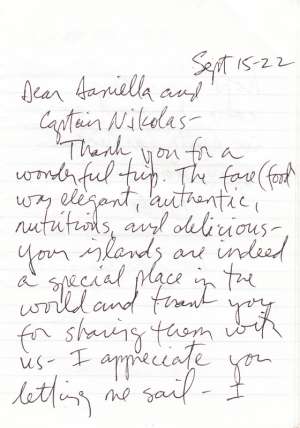 Sept 15-22
Dear Daniella and
Captain Nikolas-
Thank you for a
wonderful trip. The fare (food
way elegant, authentic,
nutritious, and delicious-
your islands are indeed
a special place in the
world and thank you
for sharing them with
us- I appreciate you
letting me sail - I